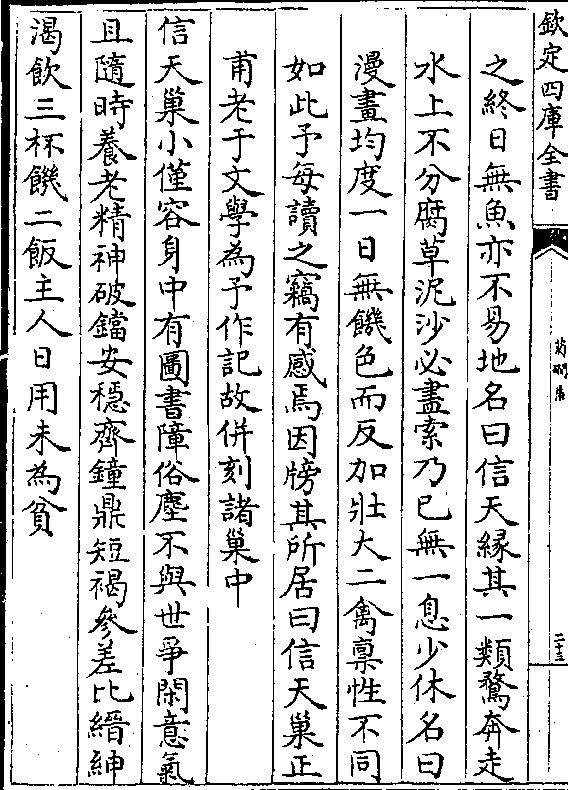 欽定四庫全書
菊磵集
二十三
之終日無魚亦不易地名曰信天緣其一類鶩奔走
水上不分腐草泥沙必盡索乃已無一息少休名曰
漫畫均度一日無饑色而反加壯大二禽稟性不同
如此予每讀之竊有感焉因牓其所居曰信天巢正
甫老于文學為予作記故併刻諸巢中
信天巢小僅容身中有圖書障俗塵不與世爭閑意氣
且隨時養老精神破鐺安穩齊鐘鼎短褐參差比縉紳
渴飲三杯饑二飯主人日用未為貧